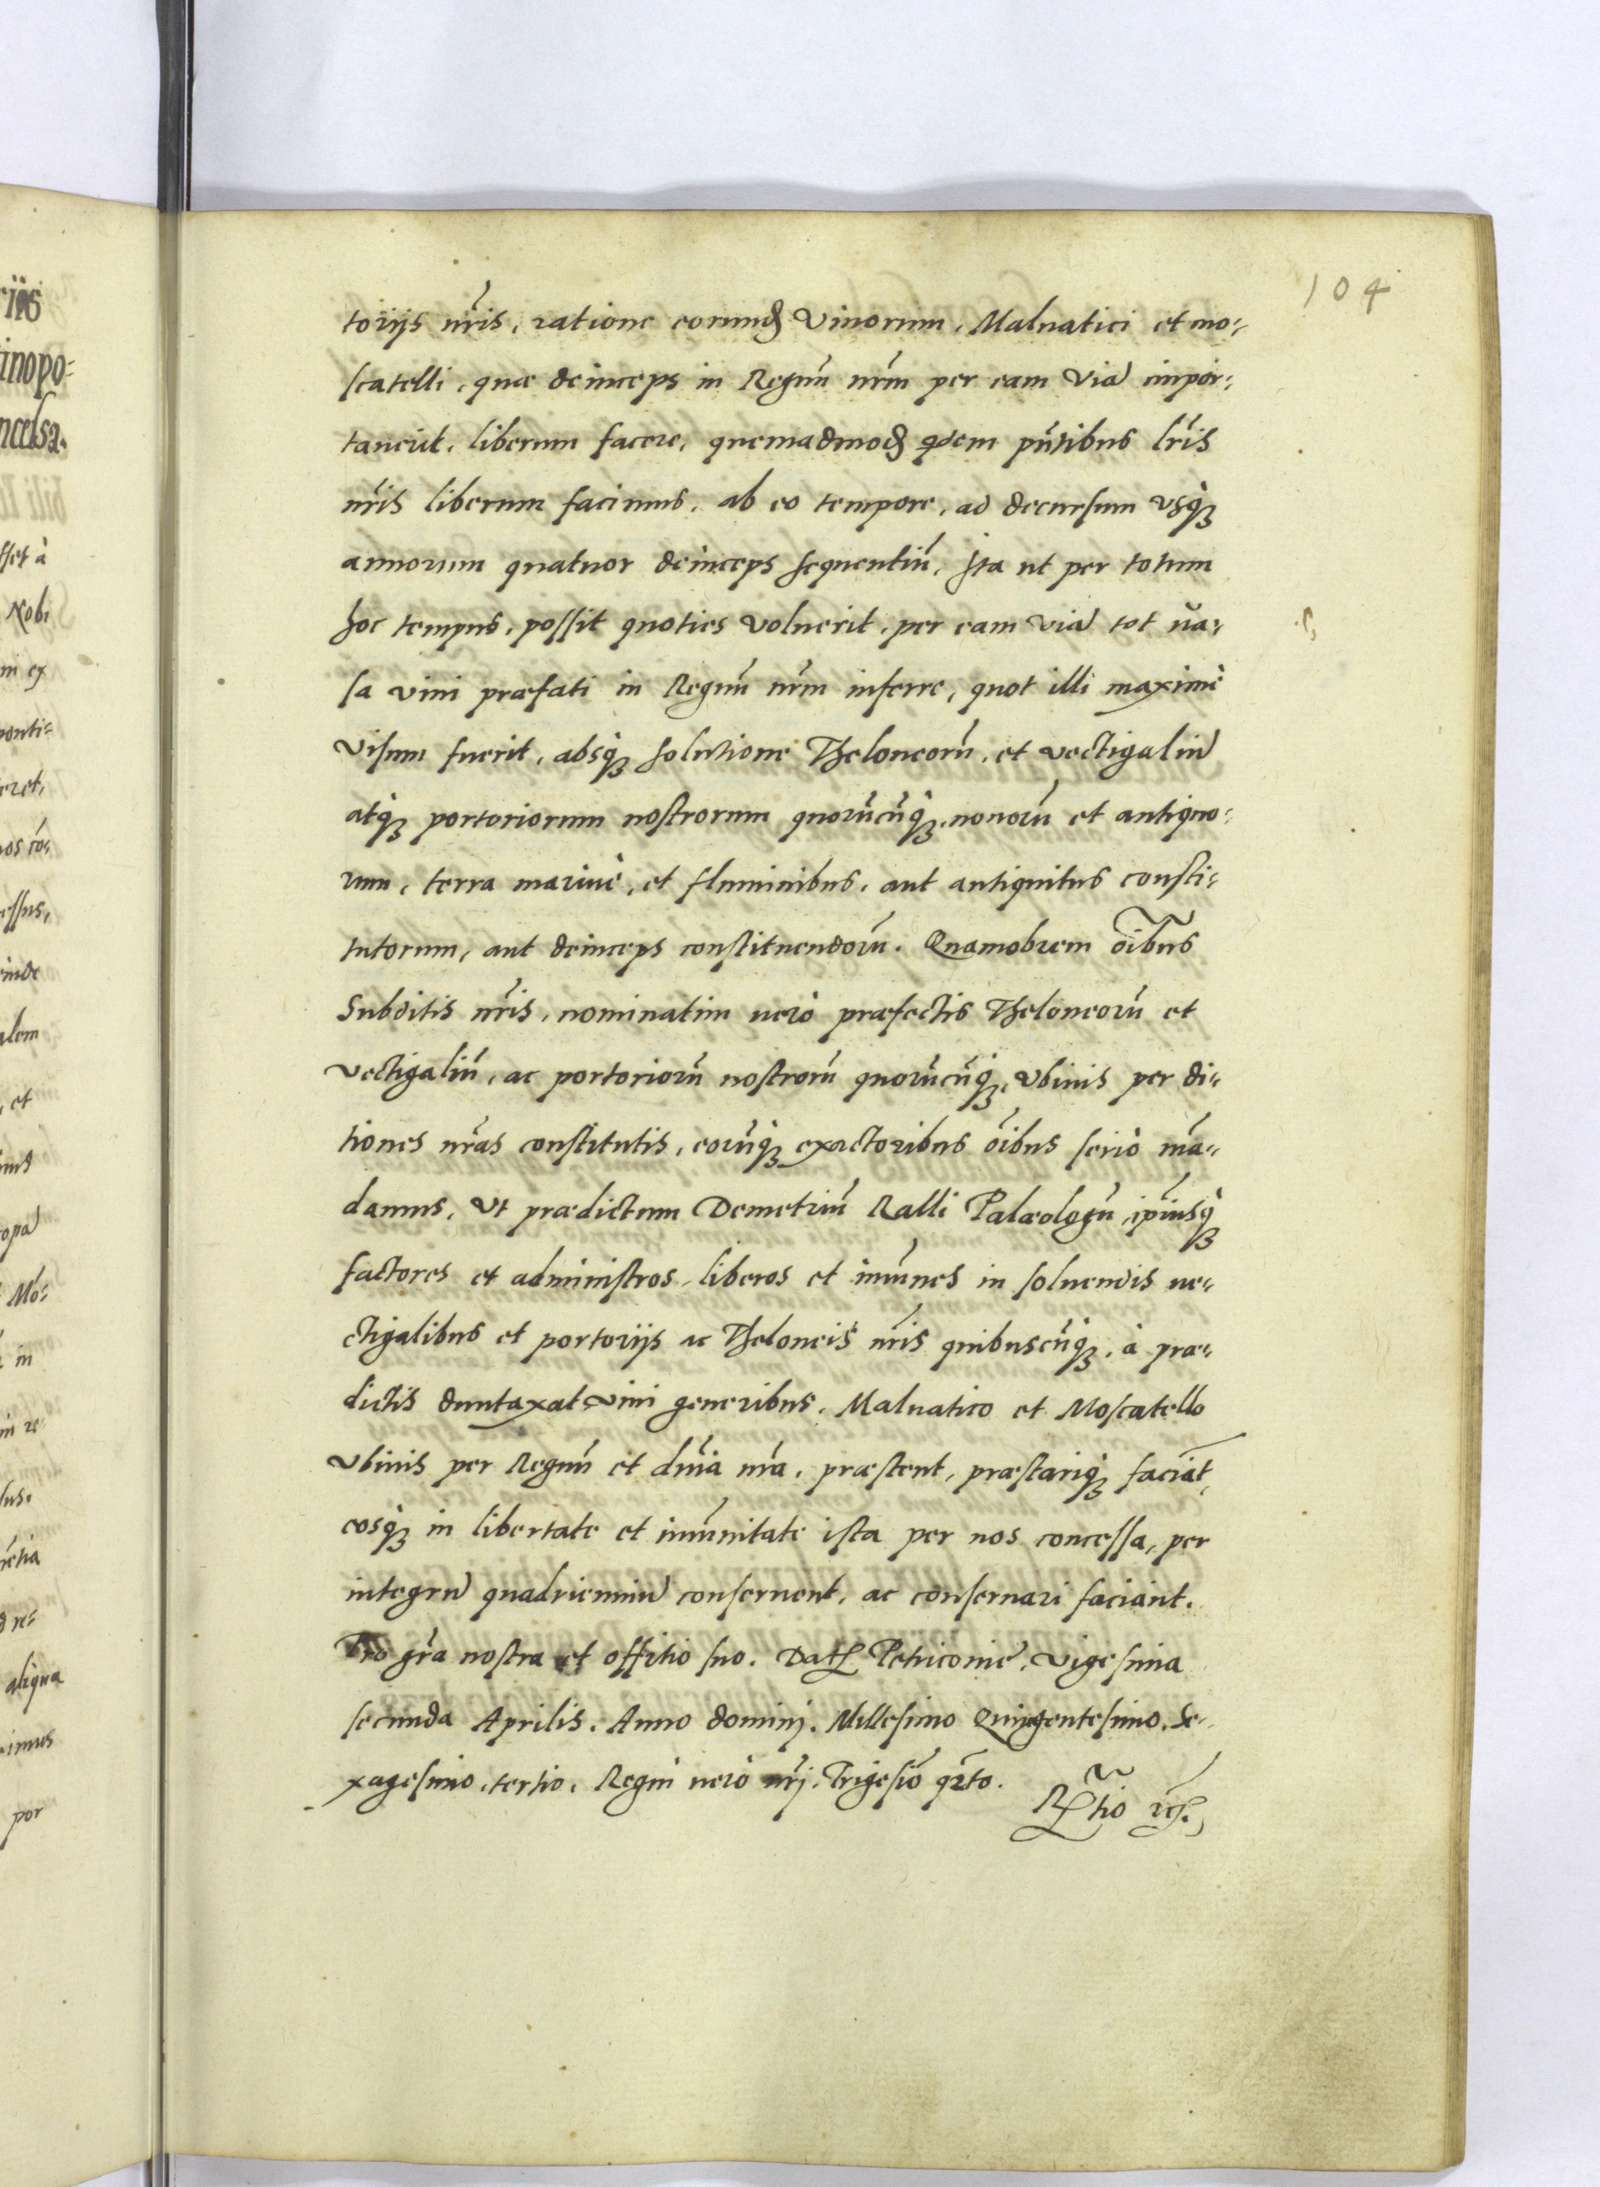 104
toriis nr̃is, ratione eorund Vinorum, Maluatici et mo-
scatelli, quæ deinceps in Regnũ nr̃m per eam viã impor-
tauerit, liberum facere, quemadmod quidem pñtibus lr̃is
nr̃is liberum facimus, ab eo tempore, ad decursum vsq̀
annorum quatuor deinceps sequentiũ, Ita ut per totum
hoc tempus, possit quoties voluerit, per eam viã tot ua-
sa vini præfati in Regnũ nr̃m inferre, quot illi maximè
visum fuerit, absq̀ solutione Theloneorũ, et vectigaliũ
atq̀ portoriorum nostrorum quorũcũq̀, nouorũ et antiquo-
rum, terra mariuè, et fluminibus, aut antiquitus consti-
tutorum, aut deinceps constituendorũ. Quamobrem oĩbus
Subditis nr̃is, nominatim uerò præfectis Theloneorũ et
vectigaliũ, ac portoriorũ nostrorũ quorũcũq̀, vbiuis per di-
tiones nr̃as constitutis, eorũq̀ exactoribus oĩbus seriò mã-
damus, Vt prædictum Demetriũ Ralli Palæologũ, ip̃iusq̀
factores et administros, liberos et im̃unes in soluendis ue-
ctigalibus et portoriis ac Theloneis nr̃is quibuscũq̀, à præ-
dictis duntaxat vini generibus, Maluatico et Moscatello
vbiuis per Regnũ et dnĩa nr̃a, præstent, præstariq̀ faciãt,
eosq̀ in libertate et im̃unitate ista per nos concessa, per
integrũ quadrienniũ conseruent, ac conseruari faciant.
Pro gr̃a nostra et offitio suo. Dat Petricouiæ, vigesima
secunda Aprilis, Anno dominj, Millesimo Quingentesimo, Se-
xagesimo, tertio, Regni uerò nr̃j, Trigesiõ qr̃to.
riis
tinopo-
ncelsa.
sset à
Nobi
ni ex
ponti-
eret,
nos cõ-
essus,
einde
alem
, et
ropã
Mo-
in
in re-
sus.
aliqua
por